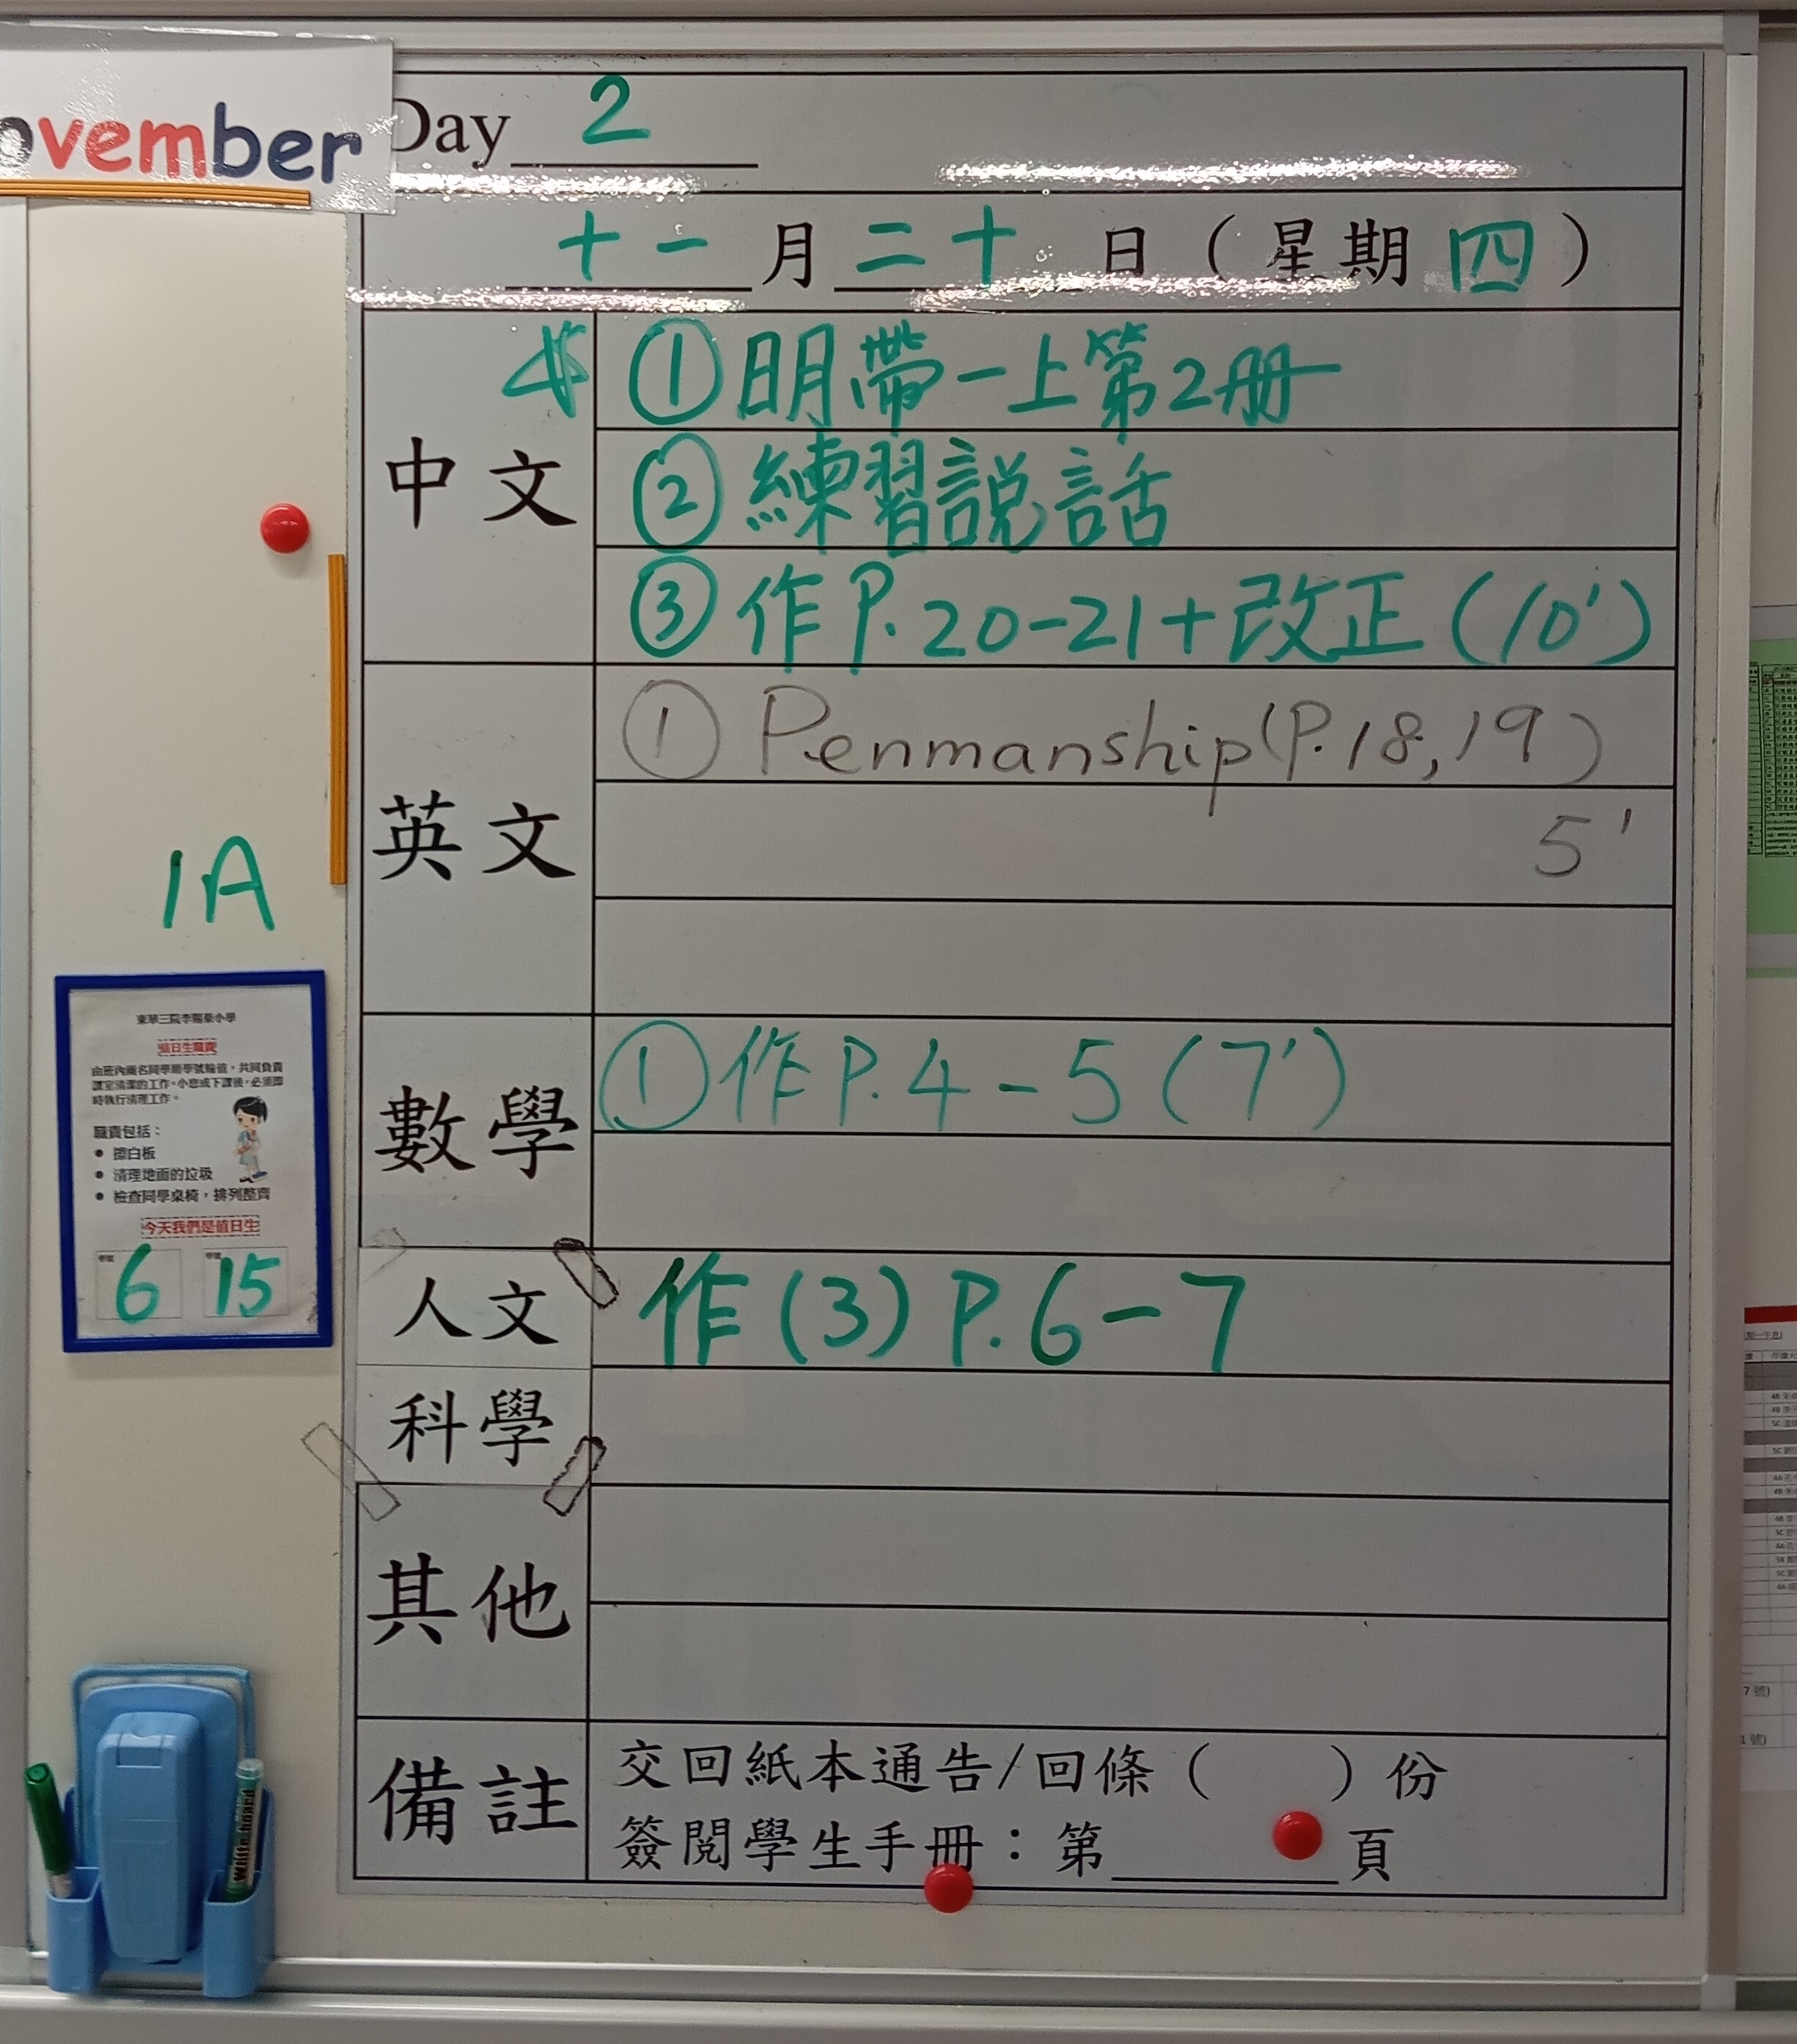 November
Day 2
十一月二十日（星期四）
中文
①明帶一上第2冊
②練習説話
③作P.20-21+改正(10')
英文
①Penmanship(P.18,19)
5'
數學
①作P.4-5(7')
人文
作(3)P.6-7
科學
其他
備註
交回紙本通告/回條（　　）份
簽閱學生手冊：第______頁
1A
東華三院李賜豪小學
值日生職責
由班內兩名同學順學號輪值，共同負責
課室清潔的工作。小息或下課後，必須即
時執行清理工作。
職責包括：
• 擦白板
• 清理地面的垃圾
• 檢查同學桌椅，排列整齊
今天我們是值日生
學號 6 學號 15
Whiteboard
7 號)
1 號)